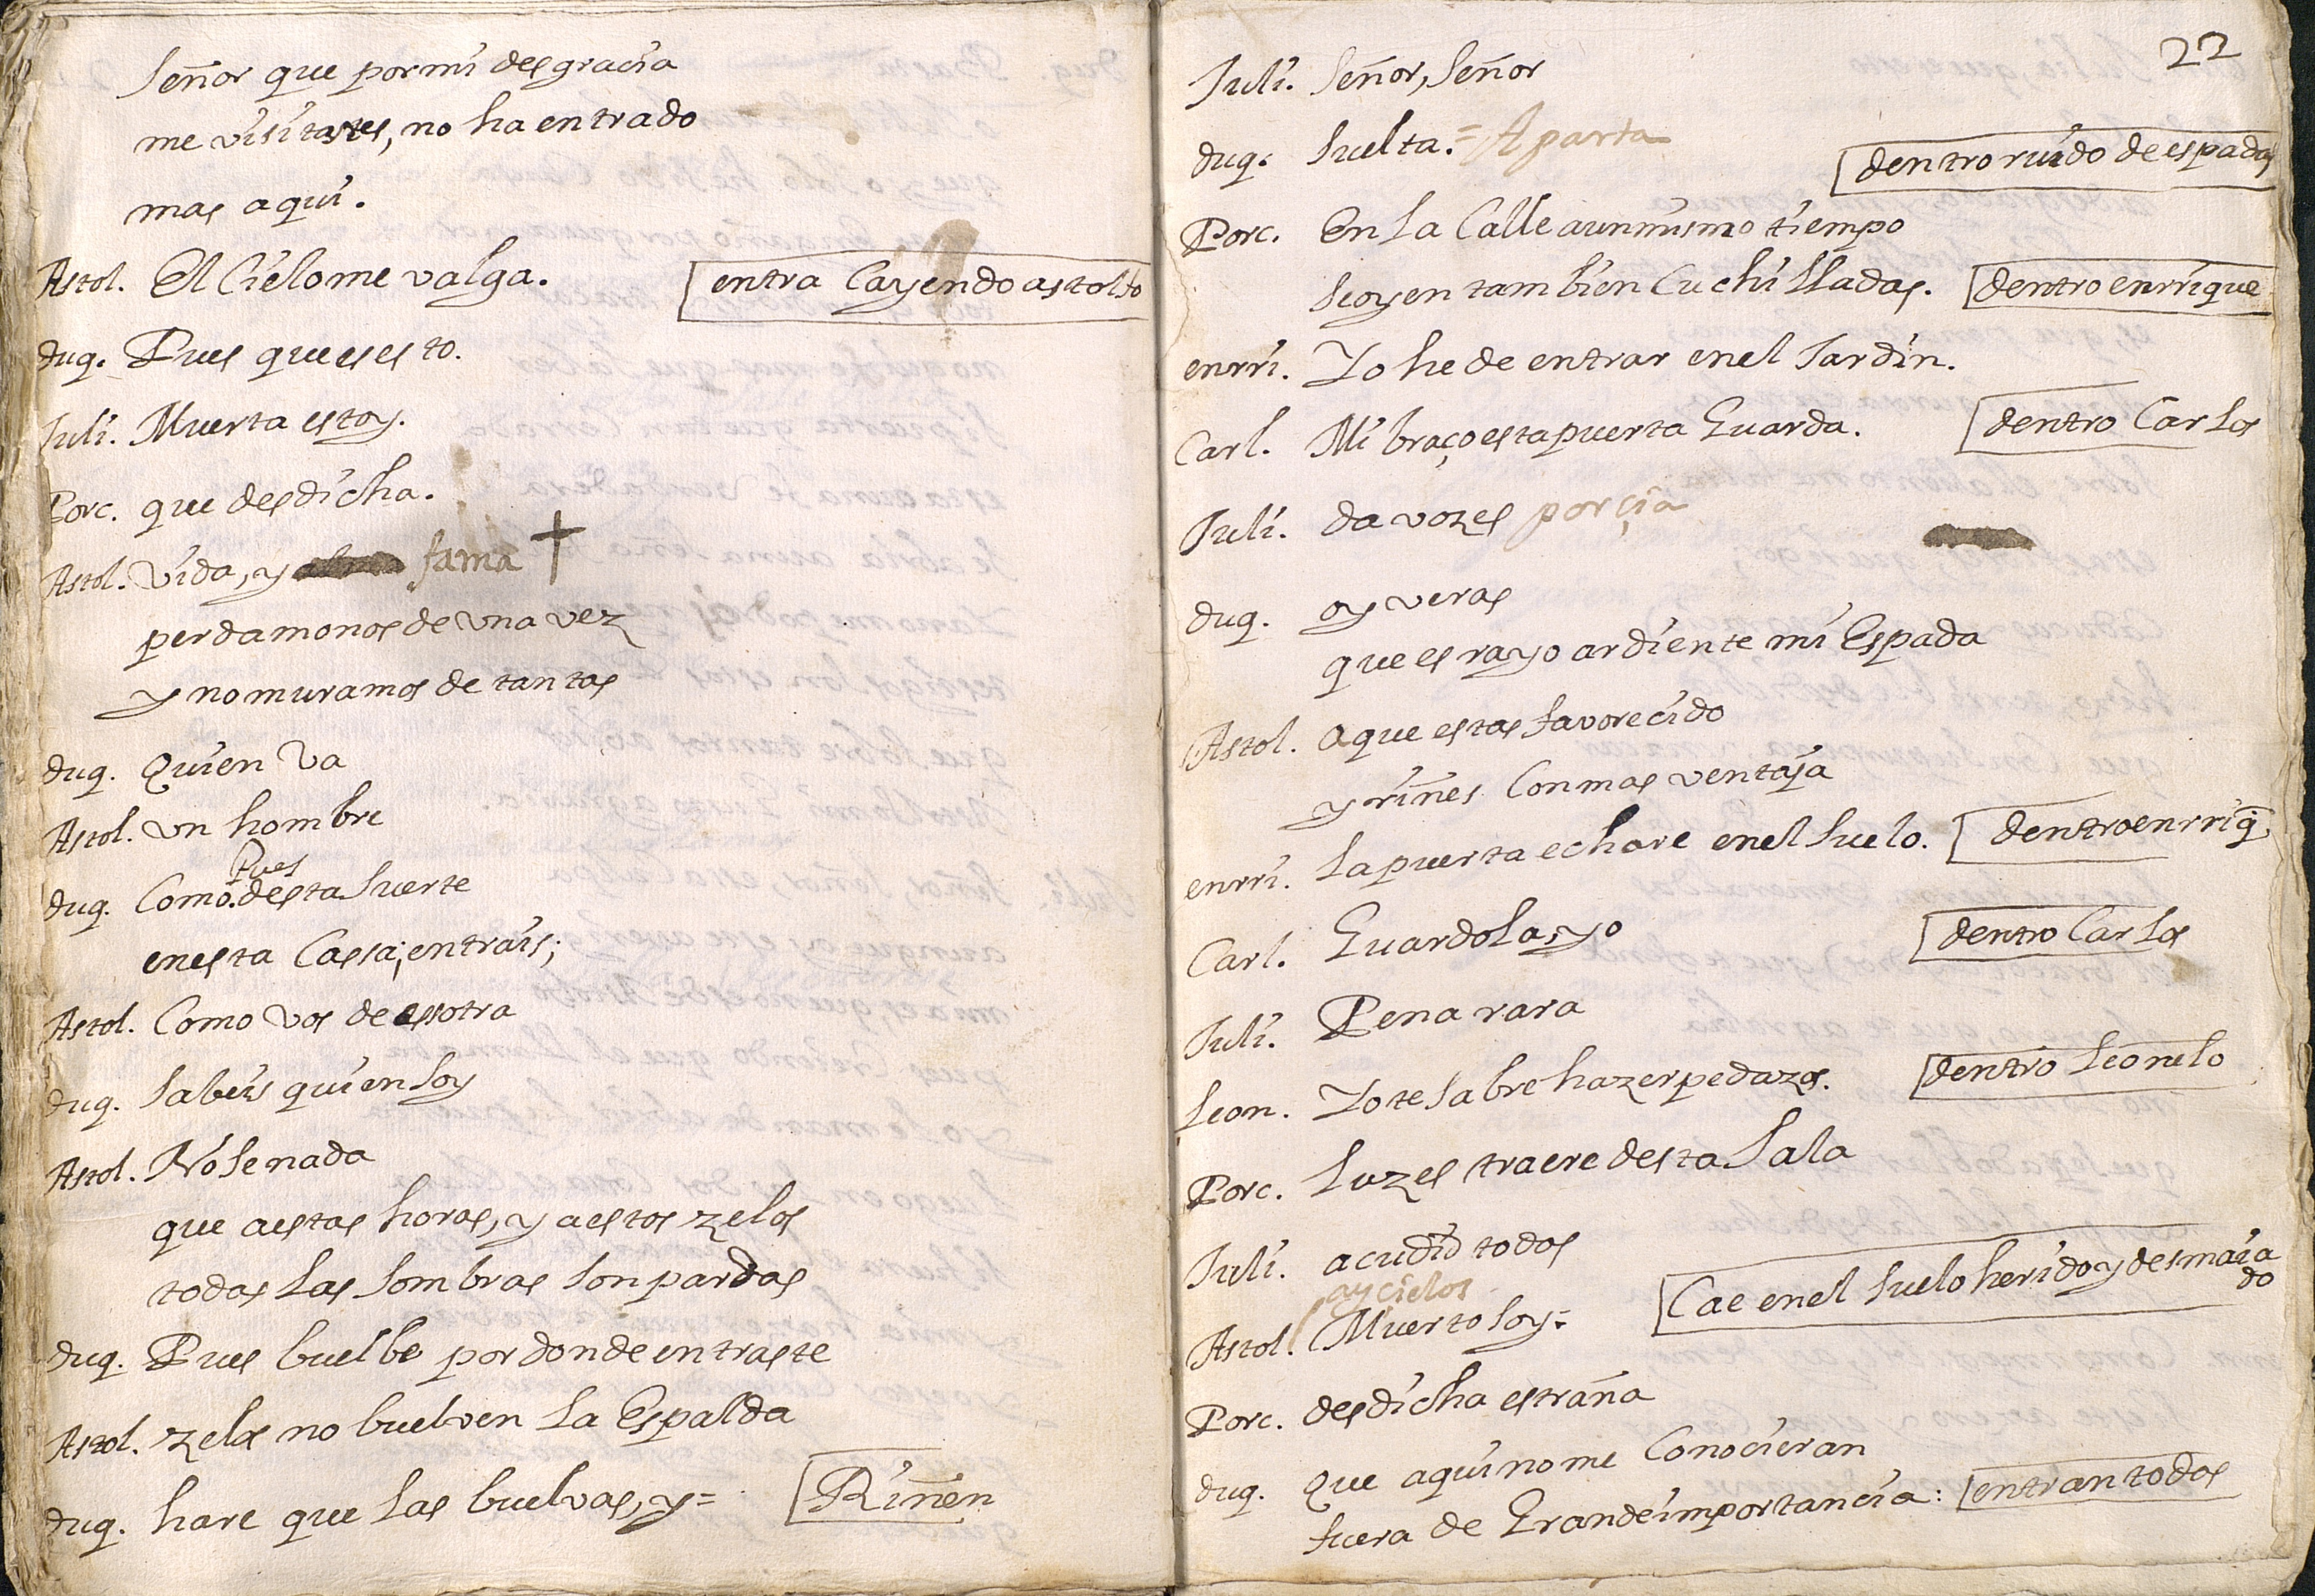 Señor que por mi desgracia
me visitastes, no ha entrado
mas aqui.
Astol. El Cielo me valga. entra Cayendo astolfo
duq. Pues que es esto.
Juli. Muerta estoy.
Porc. que desdicha.
Astol. vida, y fama
perdamonos de vna vez
y no muramos de tantas
duq. Quien va
Astol. vn hombre
Pues
duq. Como desta Suerte
en esta Cassa; entrais;
Astol. Como vos de essotra
duq. Sabeis quien Soy
Astol. No Se nada
que a estas horas, y a estos zelos
todas Las Sombras Son pardas
duq. Pues buelbe por donde entraste
Astol. zelos no buelven La Espalda
duq. hare que Las buelvas, y= Riñen
22
Juli. Señor, Señor
duq. Suelta.= Aparta
dentro ruido de espadas
Porc. En La Calle a un mismo tiempo
Se oyen tambien Cuchilladas. dentro enrrique
enrri. Yo he de entrar en el Jardin.
Carl. Mi braço esta puerta Guarda. dentro Carlos
Juli. da vozes porçia
duq. oy veras
que es rayo ardiente mi Espada
Astol. a que estas favorecido
y riñes Con mas ventaja
enrri. La puerta echare en el Suelo. dentro enrriq̃
Carl. Guardola yo dentro Carlos
Juli. Pena rara
Leon. Yo te Sabre hazer pedazos. dentro Leonelo
Porc. Luzes traere desta Sala
Juli. acudid todos
ay cielos
Astol. Muerto Soy= Cae en el Suelo herido y desmaia
do
Porc. desdicha estraña
duq. Que aqui no me Conocieran
fuera de Grande importancia: entran todos